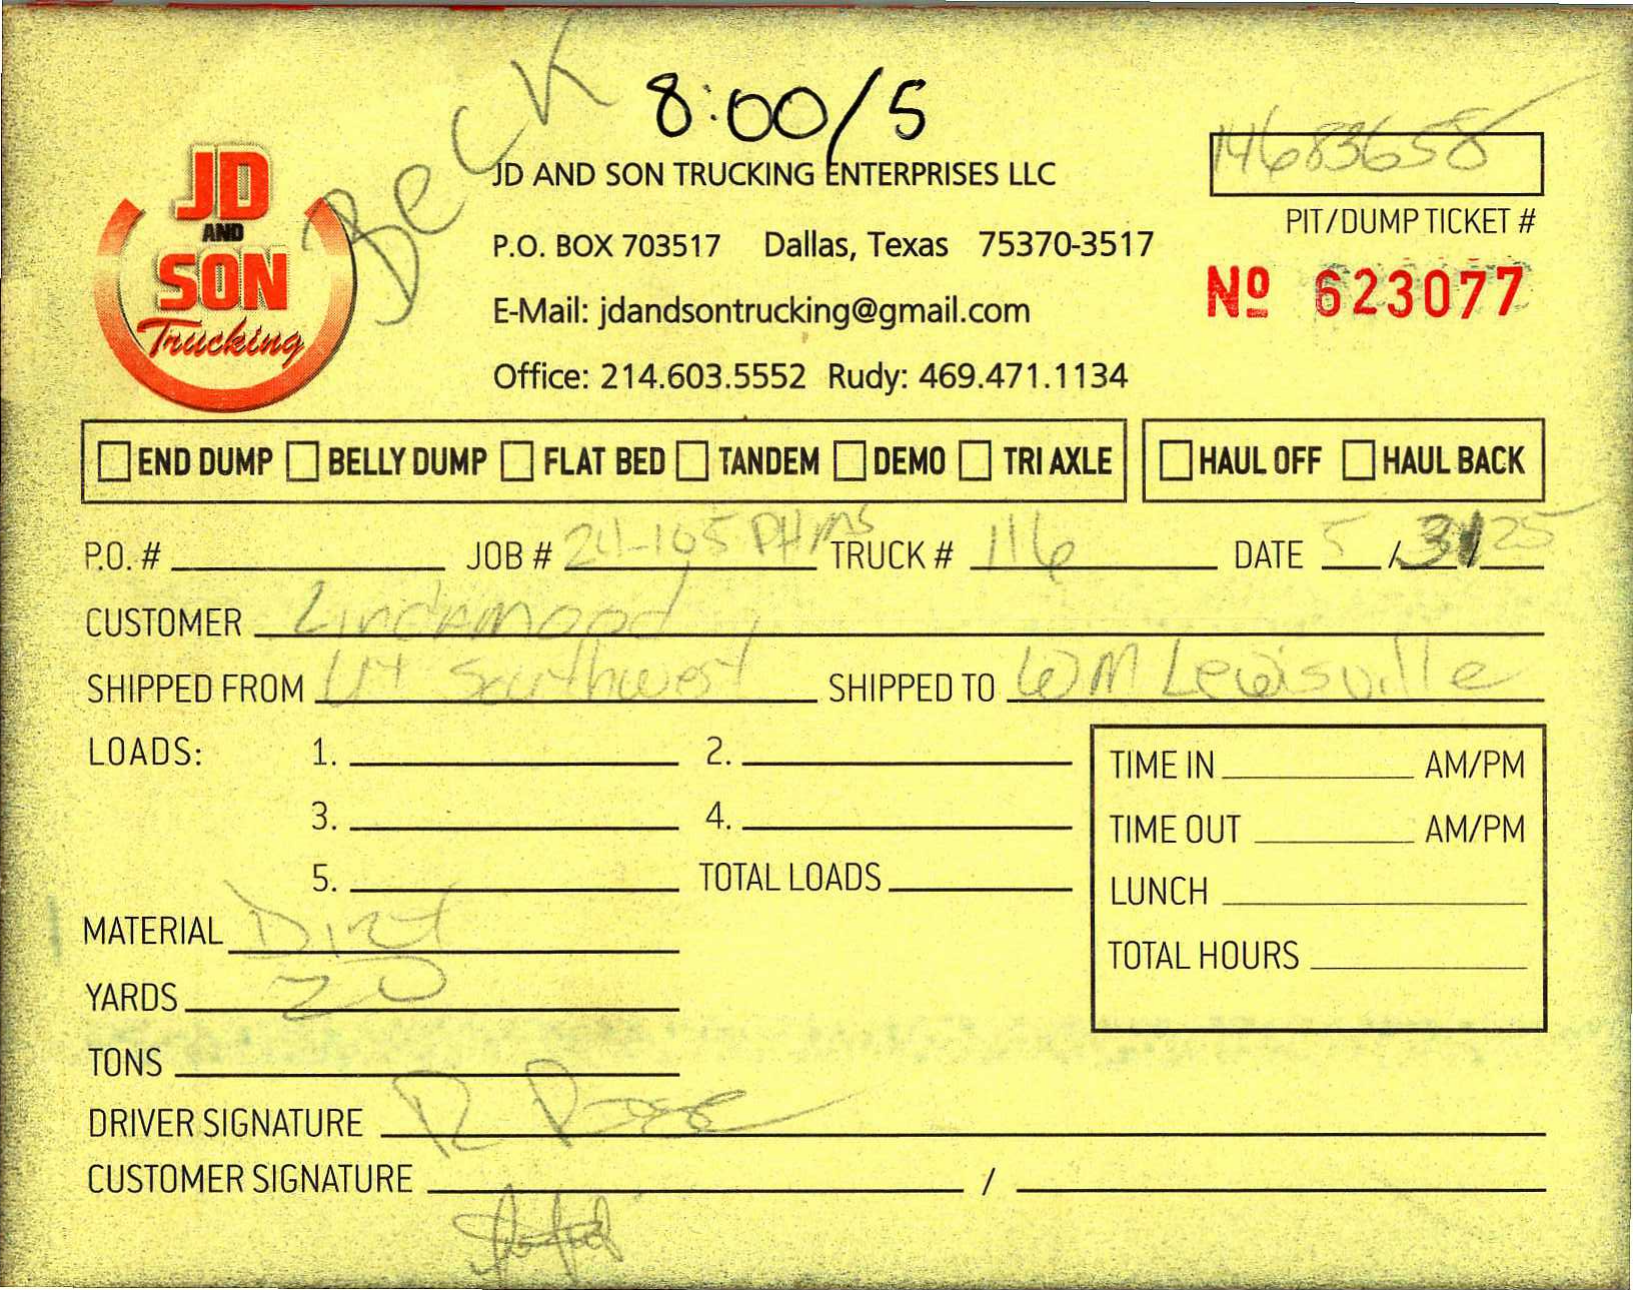 Beck
8:00/5
JD
AND
SON
Trucking
JD AND SON TRUCKING ENTERPRISES LLC
P.O. BOX 703517 Dallas, Texas 75370-3517
E-Mail: jdandsontrucking@gmail.com
Office: 214.603.5552 Rudy: 469.471.1134
14683658
PIT/DUMP TICKET #
Nº 623077
☐ END DUMP ☐ BELLY DUMP ☐ FLAT BED ☐ TANDEM ☐ DEMO ☐ TRI AXLE ☐ HAUL OFF ☐ HAUL BACK
P.O. # JOB # 24-105 TRUCK # 116 DATE 5/31/25
CUSTOMER Lindamood
SHIPPED FROM UT Southwest SHIPPED TO WM Lewisville
LOADS: 1. 2.
3. 4.
5. TOTAL LOADS
TIME IN AM/PM
TIME OUT AM/PM
LUNCH
TOTAL HOURS
MATERIAL Dirt
YARDS 20
TONS
DRIVER SIGNATURE R
CUSTOMER SIGNATURE /